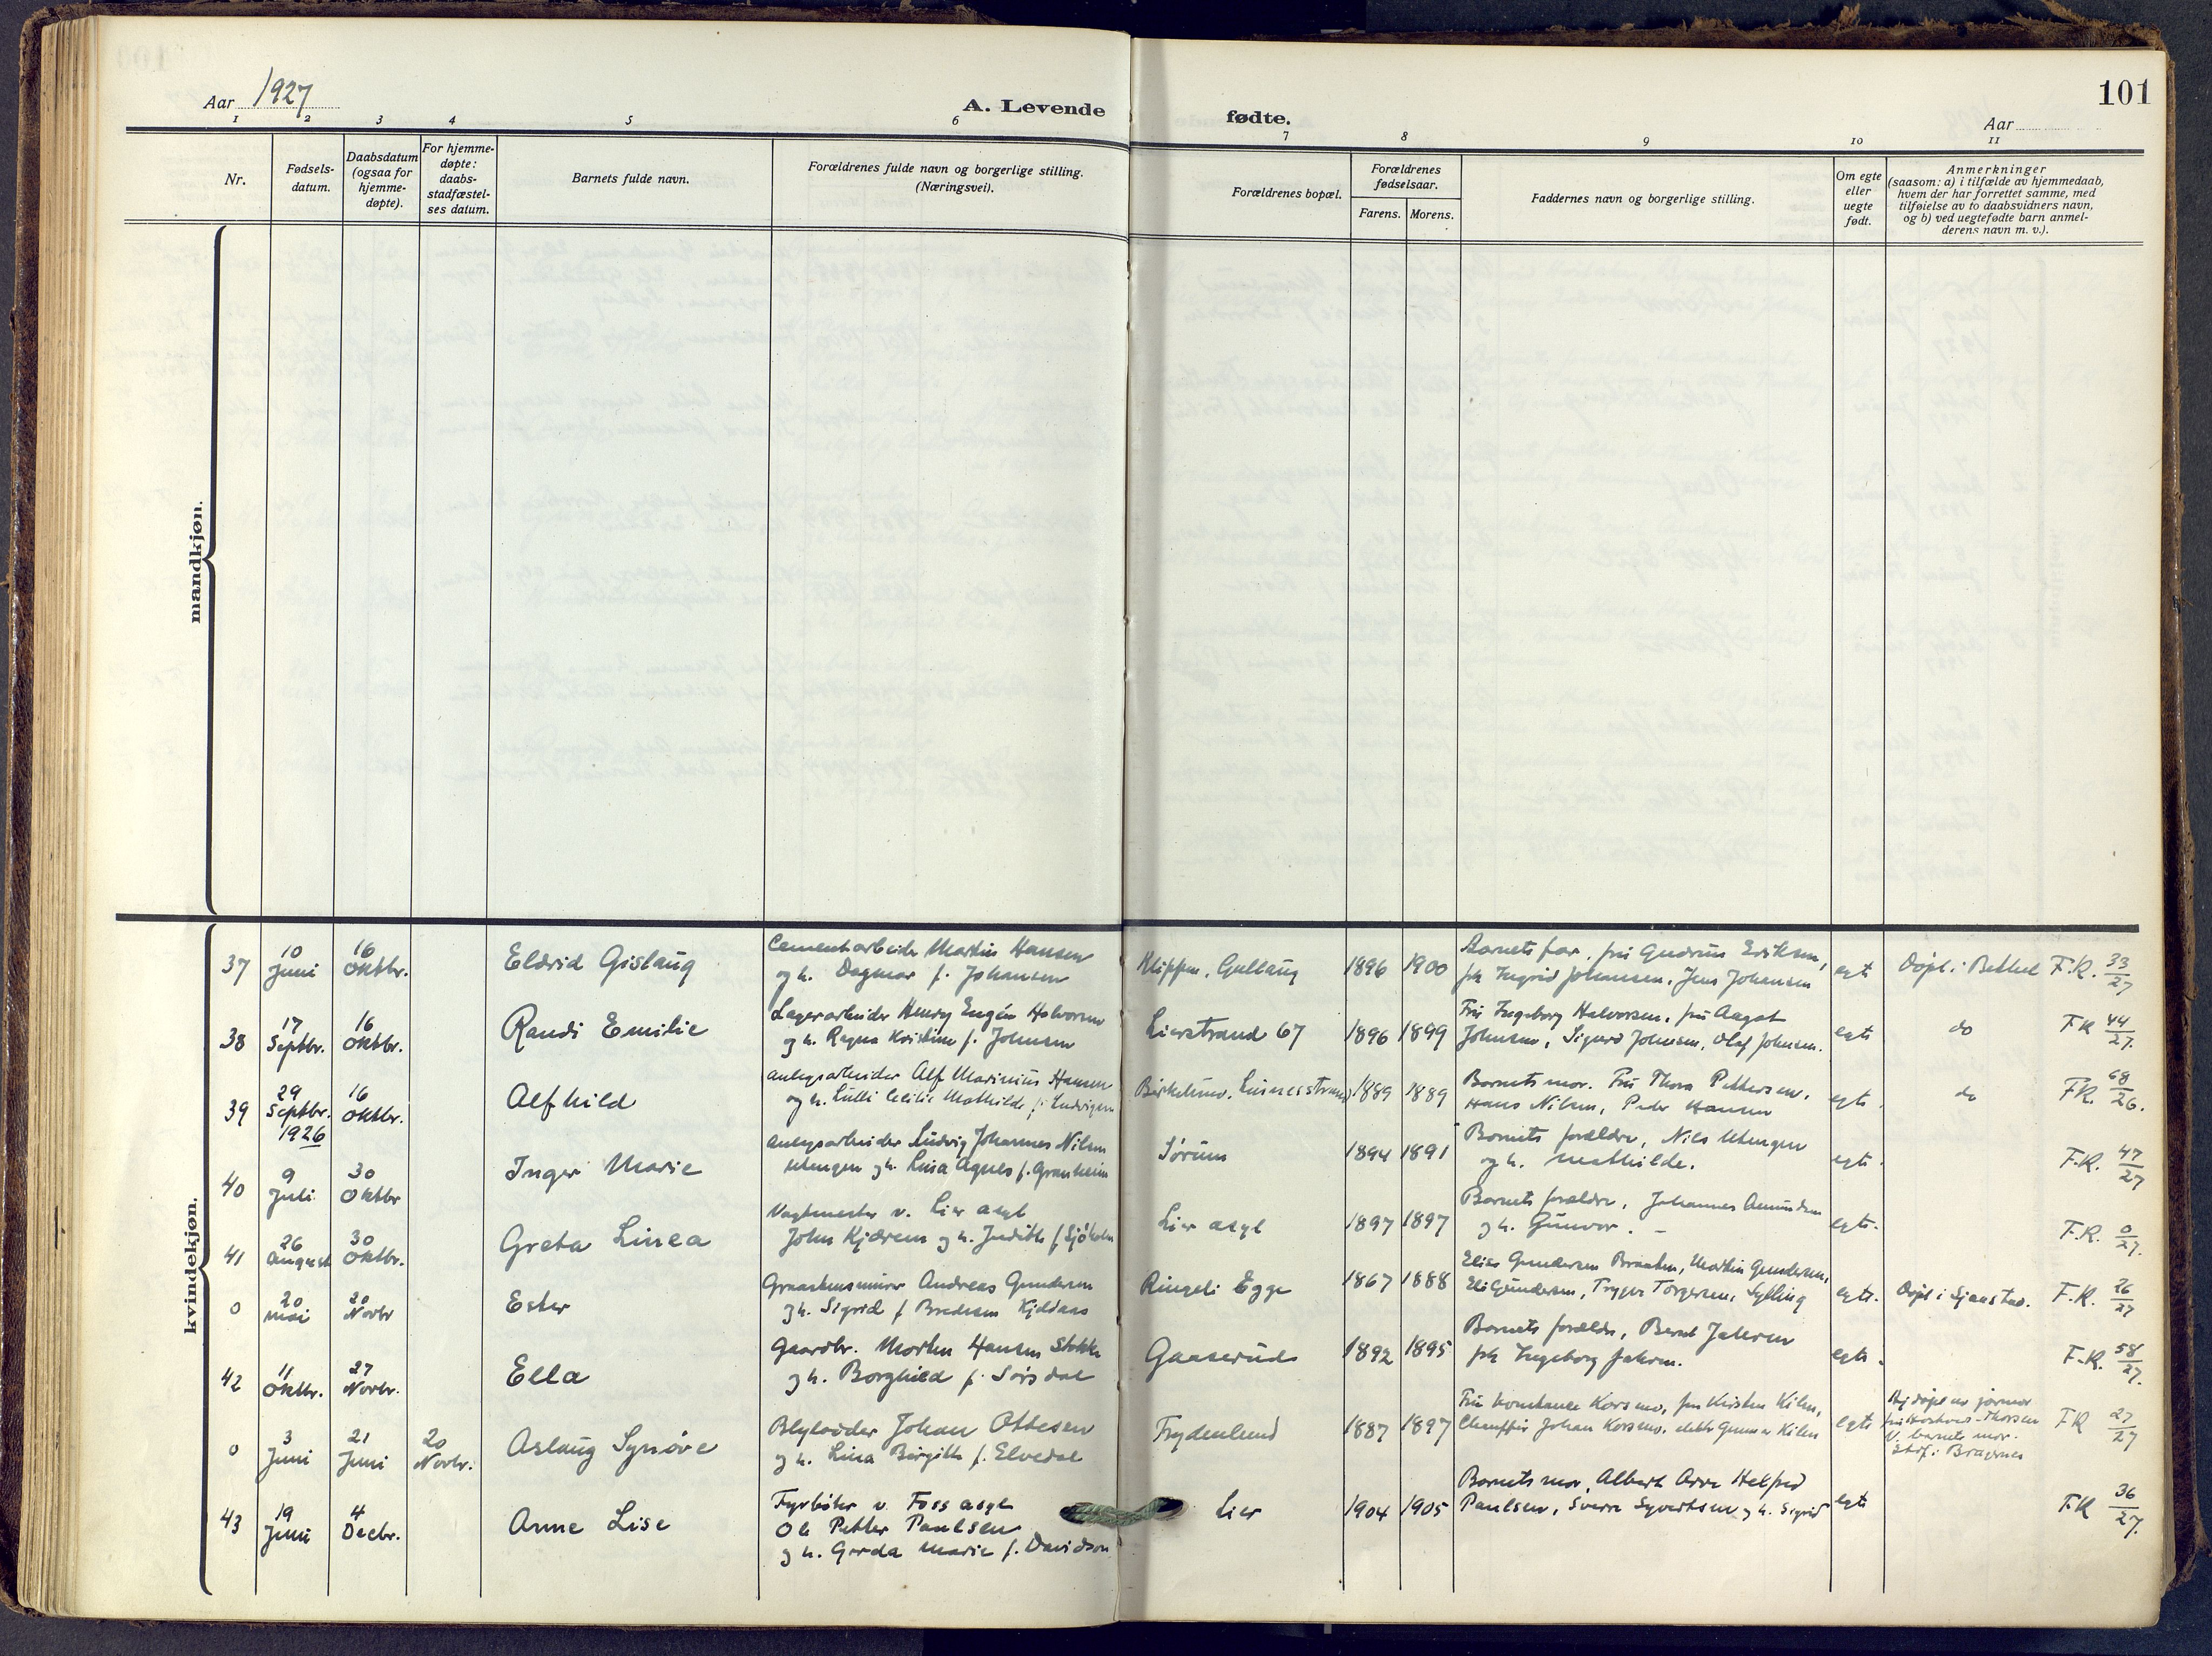 101
Aar 1927
A. Levende
fødte.
Aar
1 2 3 4 5 6 7 8 9 10 11
Nr.
Fødsels-
datum.
Daabsdatum
(ogsaa for
hjemme-
døpte).
For hjemme-
døpte:
daabs-
stadfæstel-
ses datum.
Barnets fulde navn.
Forældrenes fulde navn og borgerlige stilling.
(Næringsvei).
Forældrenes bopæl.
Forældrenes
fødselsaar.
Farens. Morens.
Faddernes navn og borgerlige stilling.
Om egte
eller
uegte
født.
Anmerkninger
(saasom: a) i tilfælde av hjemmedaab,
hvem der har forrettet samme, med
tilføielse av to daabsvidners navn,
og b) ved uegtefødte barn anmel-
derens navn m. v.).
mandkjøn.
kvindekjøn.
37
10
Juni
16
Oktbr.
Eldrid Gislaug
Cementarbeider Martin Hansen
og h. Dagmar f. Johansen
Klippen, Gullaug
1896 1900
Barnets far, fru Gudrun Eriksen,
frk Ingrid Johannesen, Jens Johansen
egte
Døpt i Bethel F.R. 33/27
38
17
Septbr.
16
Oktbr.
Randi Emilie
Lagerarbeider Henry Eugén Halvorsen
og h. Ragna Kristine f. Johnsen
Lierstrand 67
1896 1899
Fru Ingeborg Halvorsen, fru Aagot
Johnsen, Sigurd Johnsen, Olaf Johnsen.
egte
do F.R 44/27.
39
29
Septbr.
1926
16
Oktbr.
Alfhild
Anlegsarbeider Alf Marinius Hansen
og h. Lulli Cecilie Mathilde f. Ludvigsen
Birkelund, Linnesstrand
1889 1889
Barnets mor. Fru Thora Pettersen,
Hans Nilsen, Peder Hansen
egte.
do F.R. 68/26.
40
9
Juli
30
Oktbr
Inger Marie
Anlegsarbeider Ludvig Johannes Nilsen
Utengen og h. Lina Agnes f. Granheim
Sørum
1894 1891
Barnets forældre, Nils Utengen
og h. Mathilde.
egte.
F.R. 47/27
41
26
August
30
Oktbr.
Greta Linea
Vagtmester v. Lier asyl
John Kjærem og h. Judith f. Sjøholm
Lier asyl
1897 1897
Barnets forældre, Johannes Amundsen
og h. Gunvor.
egte.
F.R. 0/27.
0
20
Mai
20
Novbr
Ester
Graastensmurer Andreas Gundersen
og h. Sigrid f Bredesen Kjldaas
Ringeli Egge
1867 1888
Elias Gundersen Braaten, Martin Gundersen,
Eli Gundersen, Trygve Torgersen, Sylling
egte.
Døpt i Sjaastad. F.R. 26/27
42
11
Oktbr.
27
Novbr.
Ella
Gaardbr. Morten Hansen Stokke
og h. Borghild f. Sørsdal
Gaaserud
1892 1895
Barnets forældre, Bernt Jahren
frk Ingeborg Jahren.
egte.
F.R. 58/27.
0
3
Juni
21
Juni
20
Novbr.
Aslaug Synøve
Blylodder Johan Ottesen
og h. Lina Birgitte f. Elvedal
Frydenlund
1887 1897
Fru Konstance Korsmo, fru Kirsten Kilen,
Chauffør Johan Korsmo, Gunnar Kilen
egte
Hj.døpt av jormor
V. barnets mor.
Stdf. i Bragernes
F.R 27/27
43
19
Juni
4
Decbr.
Anne Lise
Fyrbøter v. Foss asyl
Ole Petter Paulsen
og h. Gerda Marie f. Davidson
Lier
1904 1905
Barnets mor, Albert Arve Helfred
Paulsen, Sverre Syvertsen og h. Sigrid
egte
F.R 36/27.